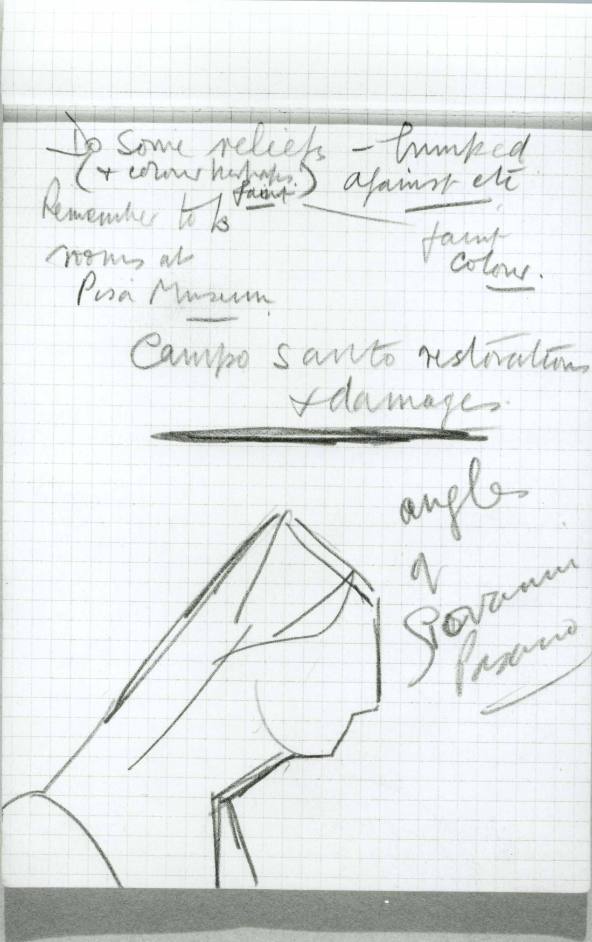 Do some reliefs – bumped
(+ colour perhaps faint) against etc
Remember to
faint
rooms at
colour.
Pisa Museum
Campo santo restorations
+ damages
angles
of
Giovanni
Pisano